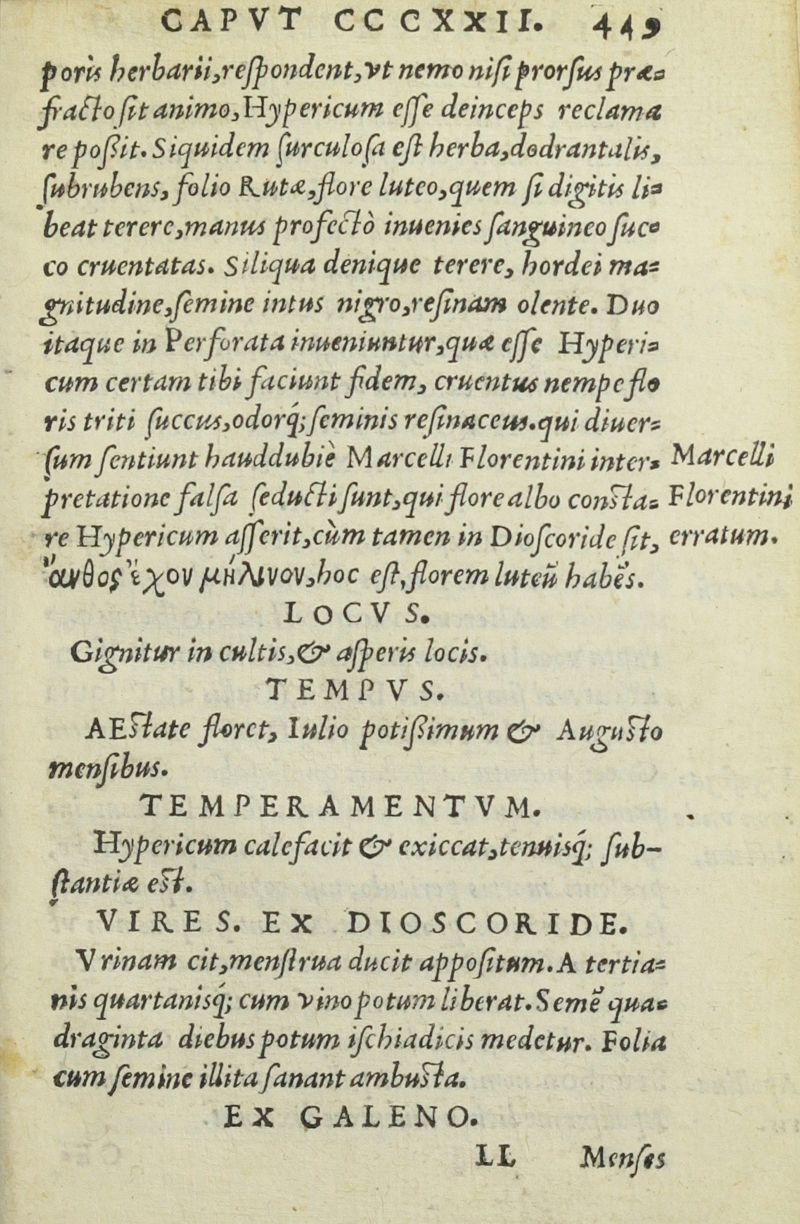 CAPVT CCCXXII. 449
poris herbarii,reſpondent,vt nemo niſi prorſus præ-
fracto ſit animo,Hypericum eſſe deinceps reclama
re poßit.Siquidem ſurculoſa eſt herba,dodrantalis,
ſubrubens,folio Rutæ,flore luteo,quem ſi digitis li-
beat terere,manus profectò inuenies ſanguineo ſuc-
co cruentatas. Siliqua denique terere, hordei ma-
gnitudine,ſemine intus nigro,reſinam olente. Duo
itaque in Perforata inueniuntur,quæ eſſe Hyperi-
cum certam tibi faciunt fidem, cruentus nempe flo
ris triti ſuccus,odorq́; ſeminis reſinaceus.qui diuer-
ſum ſentiunt hauddubiè Marcelli Florentini inter-
pretatione falſa ſeducti ſunt,qui flore albo conſta-
re Hypericum aſſerit,cùm tamen in Dioſcoride ſit,
ἄνθος ἔχον μήλινον,hoc eſt,florem luteū habēs.
Marcelli
Florentini
erratum.
LOCVS.
Gignitur in cultis,& aſperis locis.
TEMPVS.
AEſtate floret, Iulio potißimum & Auguſto
menſibus.
TEMPERAMENTVM.
Hypericum calefacit & exiccat,tenuisq́; ſub-
ſtantiæ eſt.
VIRES. EX DIOSCORIDE.
Vrinam cit,menſtrua ducit appoſitum.A tertia-
nis quartanisq́; cum vino potum liberat.Semē qua-
draginta diebus potum iſchiadicis medetur. Folia
cum ſemine illita ſanant ambuſta.
EX GALENO.
LL Menſes